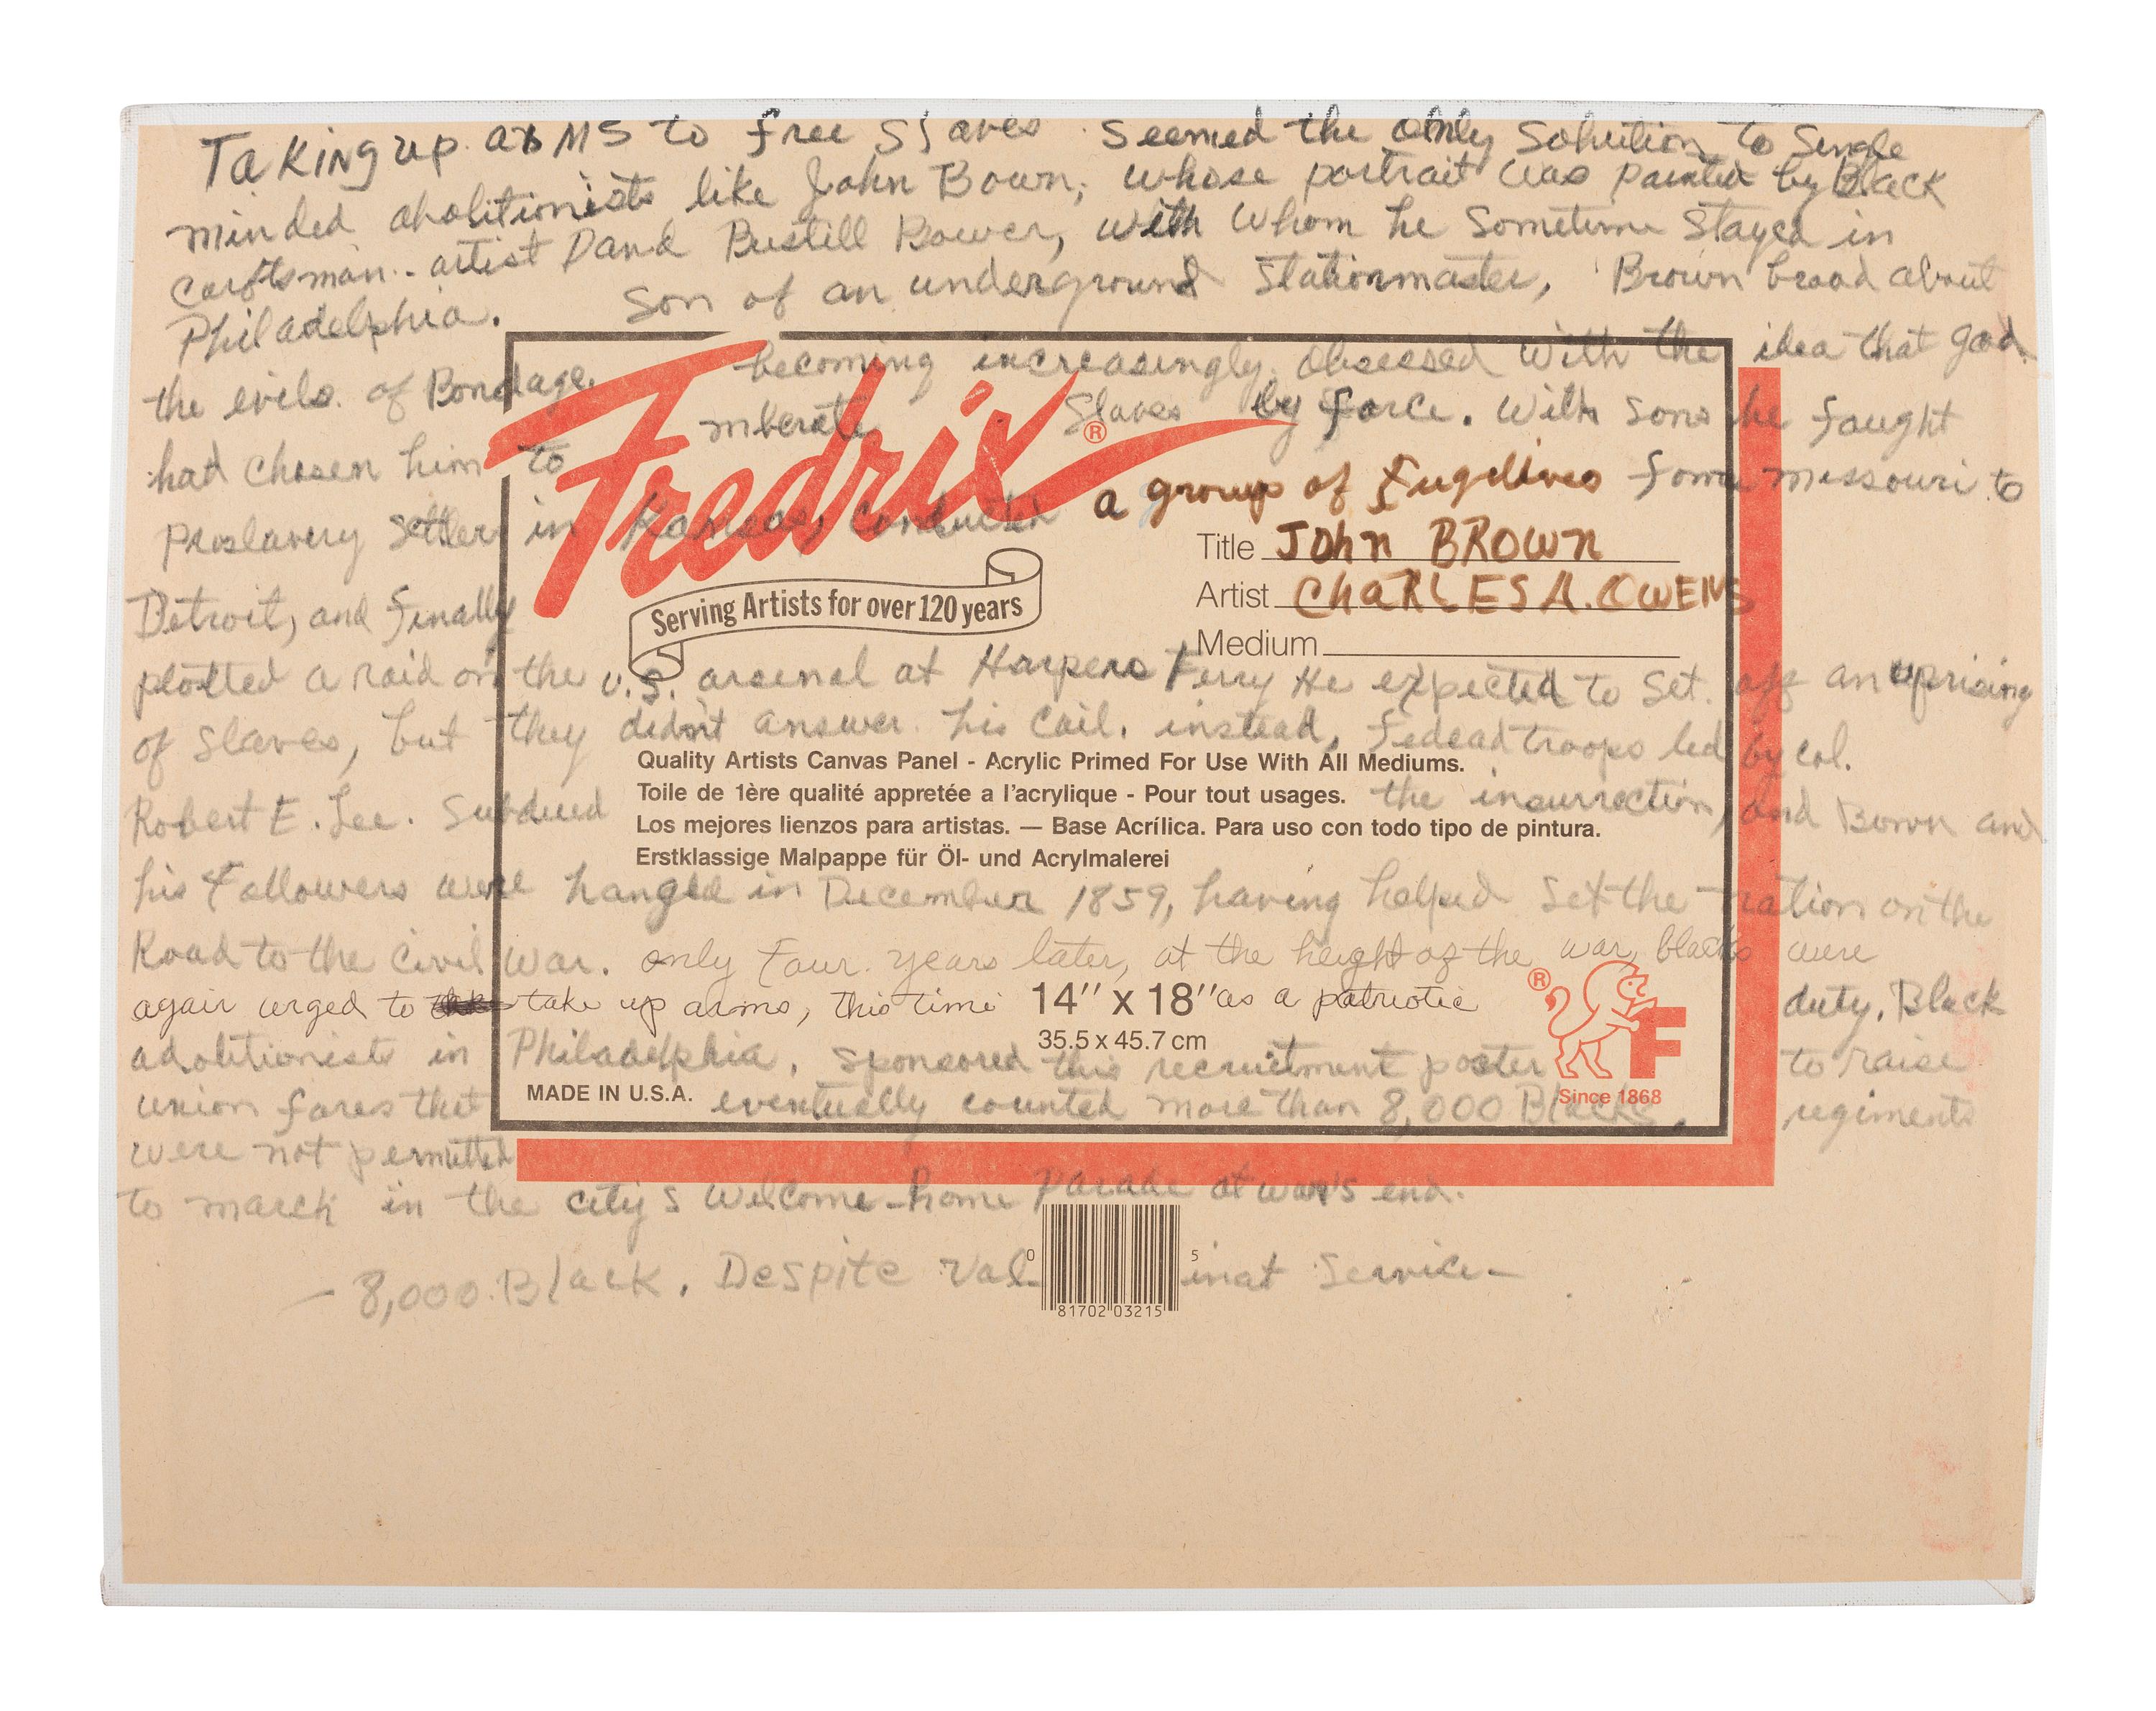 Taking up arms to free Slaves Seemed the only Solution to Single
minded abolitionists like John Bown, whose portrait was painted by Black
carftsman-artist David Bustill Bower, with whom he Sometime Stayed in
Philadelphia. Son of an underground Stationmaster, Brown brood about
the evils of Bondage, becoming increasingly obsessed with the idea that god
had chosen him to Slaves by force. With sons he fought
Proslavery Settler in Kansas, conducted a group of Fugelives from missouri to
Fredrix®
Serving Artists for over 120 years
Title JOhn BROWN
Artist ChARLES A. OWENS
Medium
Detroit, and finally
plotted a raid on the U.S. arsenal at Harpers Ferry He expected to Set off an uprising
of Slaves, but they didn't answer his Call. instead, troops led by col.
Quality Artists Canvas Panel - Acrylic Primed For Use With All Mediums.
Toile de 1ère qualité appretée a l'acrylique - Pour tout usages.
Los mejores lienzos para artistas. — Base Acrílica. Para uso con todo tipo de pintura.
Erstklassige Malpappe für Öl- und Acrylmalerei
Robert E. Lee. Subdued the insurrection, and Bown and
his Followers were hanged in December 1859, having helped Set the nation on the
Road to the Civil War. only Four years later, at the height of the war, blacks were
again urged to take up arms, this time as a patriotic duty. Black
14" x 18"
35.5 x 45.7 cm
®
F
Since 1868
MADE IN U.S.A.
abolitionists in Philadelphia, sponsored this recruitment poster to raise
union fores that eventually counted more than 8,000 Blacks, regiments
were not permitted
to march in the city's Welcome-home Parade at war's end.
— 8,000 Black. Despite Service—
0 81702 03215 5